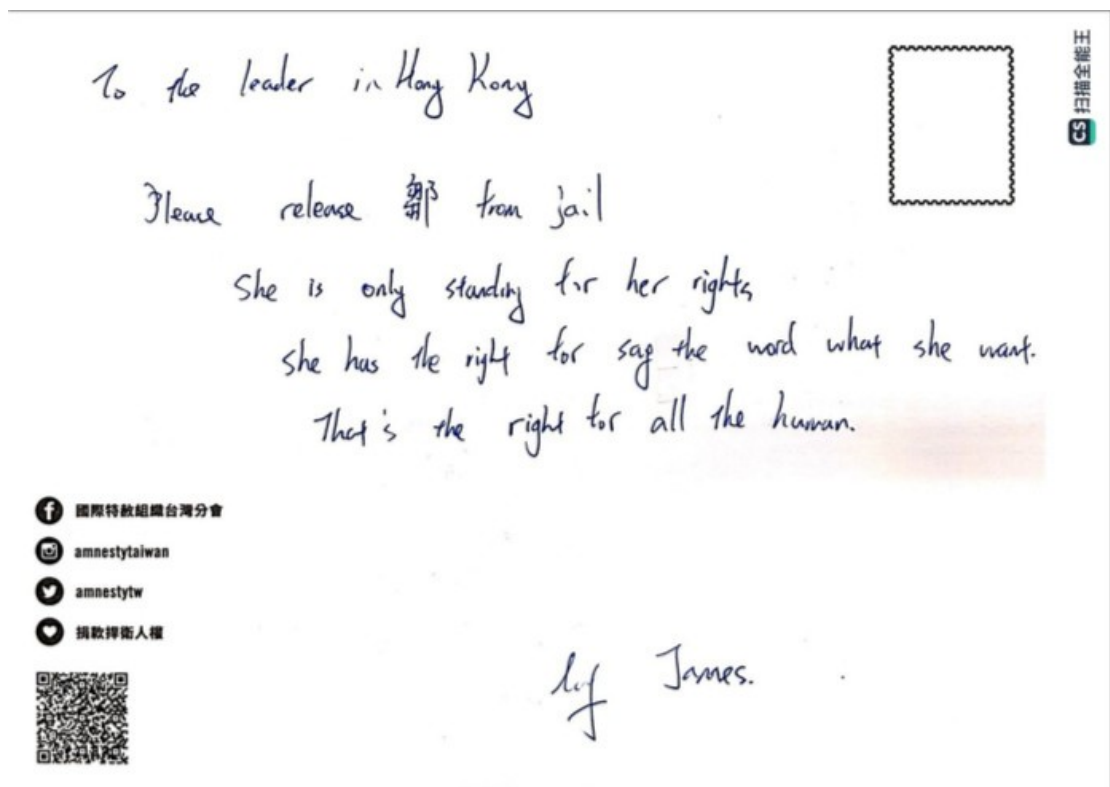 To the leader in Hong Kong
Please release 鄒 from jail
She is only standing for her rights,
she has the right for say the word what she want.
That's the right for all the human.
國際特赦組織台灣分會
amnestytaiwan
amnestytw
捐款捍衛人權
by James.
CS 扫描全能王